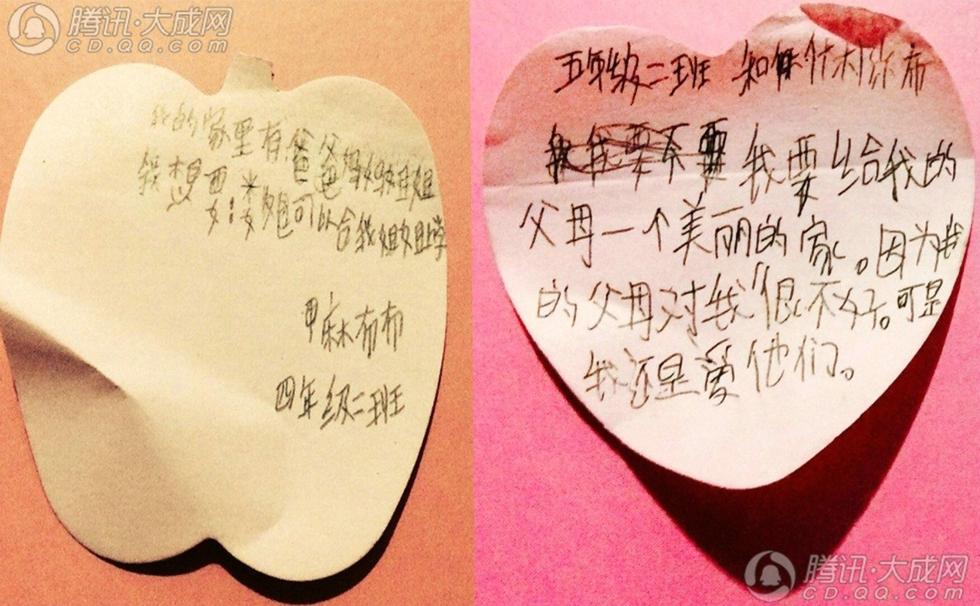 腾讯·大成网
CD.QQ.COM
我的家里有爸爸妈妈姐姐
我想要 她可以合我姐姐上学
甲麻布布
四年级二班
五年级二班
我要不要 我要给我的
父母一个美丽的家。因为我
的父母对我很不好。可是
我还是爱他们。
腾讯·大成网
CD.QQ.COM